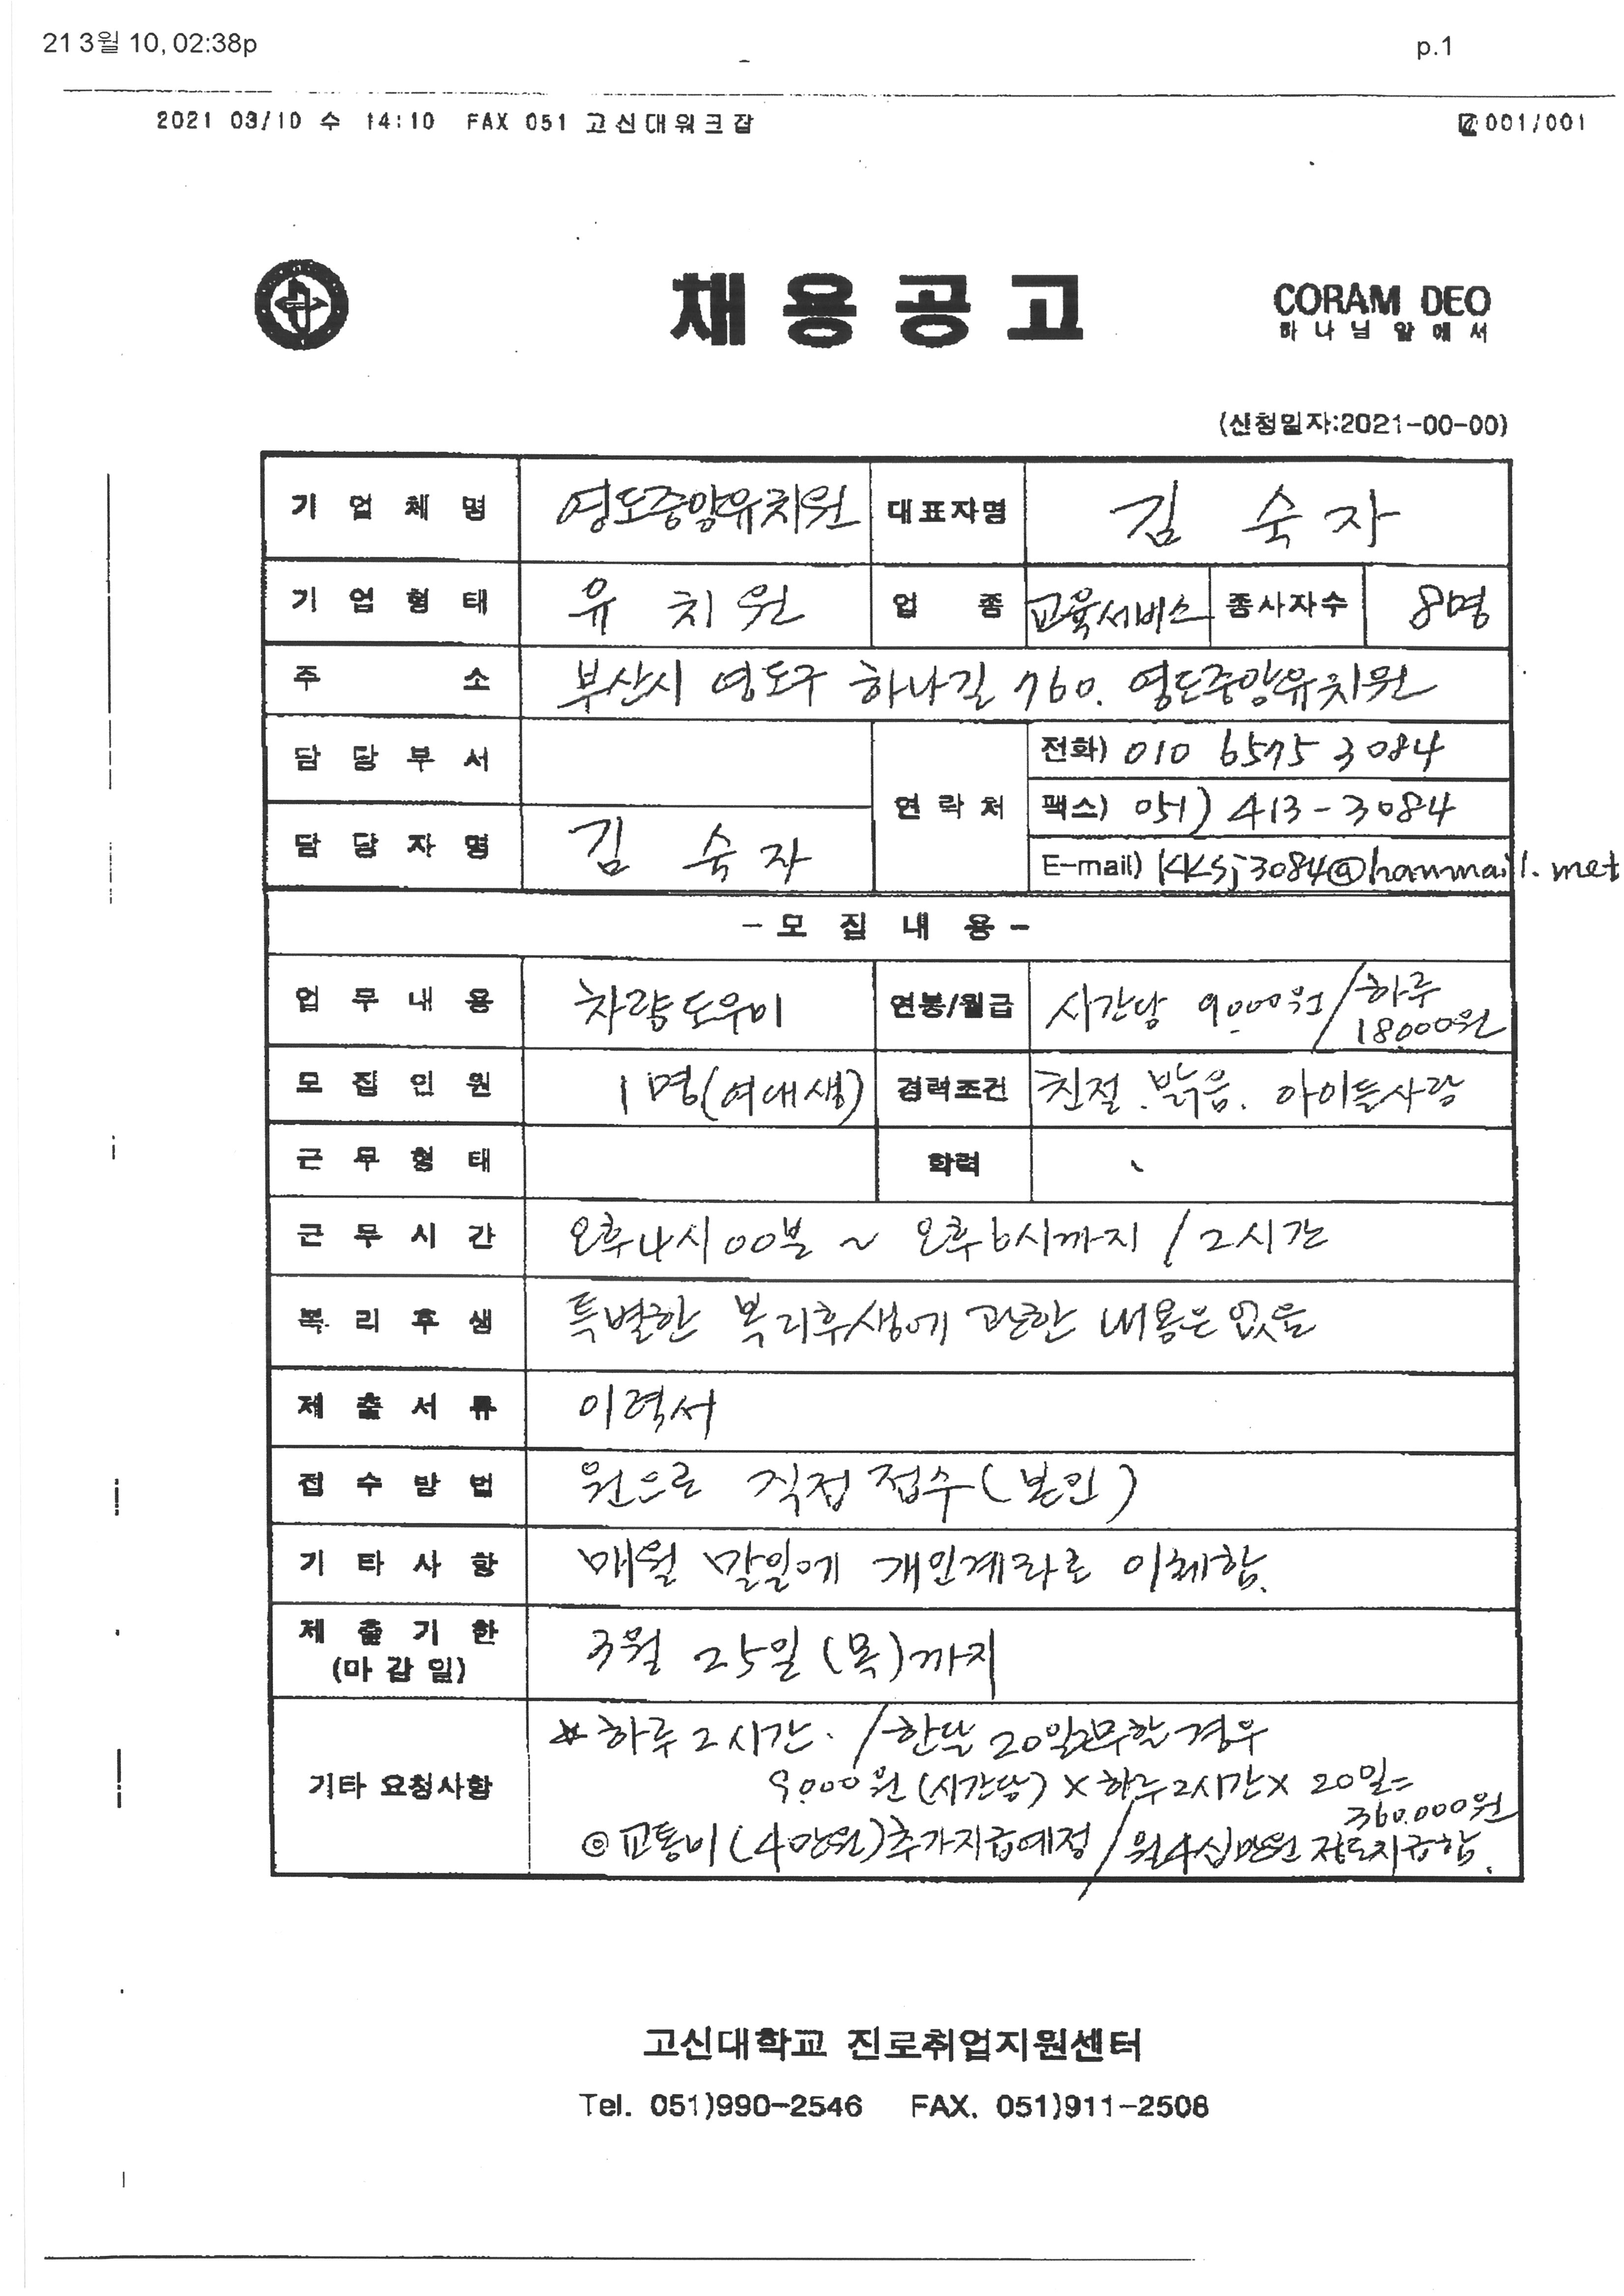 21 3월 10, 02:38p p.1
2021 03/10 수 14:10 FAX 051 고신대워크잡 001/001
채용공고
CORAM DEO
하나님앞에서
(신청일자:2021-00-00)
기업체명 영도중앙유치원 대표자명 김숙자
기업형태 유치원 업종 교육서비스 종사자수 8명
주소 부산시 영도구 하나길 760. 영도중앙유치원
담당부서
연락처 전화) 010 6575 3084
팩스) 051) 413-3084
담당자명 김숙자
E-mail) kksj3084@hanmail.net
- 모집내용 -
업무내용 차량도우미 연봉/월급 시간당 9000원/하루 18000원
모집인원 1명(여대생) 경력조건 친절. 밝음. 아이들사랑
근무형태 학력
근무시간 오후4시00분 ~ 오후6시까지 / 2시간
복리후생 특별한 복리후생에 관한 내용은 없음
제출서류 이력서
접수방법 원으로 직접 접수(본인)
기타사항 매월 말일에 개인계좌로 이체함.
제출기한 (마감일) 3월 25일(목)까지
기타 요청사항 *하루 2시간. / 한달 20일근무할 경우
9.000원(시간당) × 하루2시간 × 20일=
360.000원
◎교통비(4만원)추가지급예정 / 월4십만원 정도지급함.
고신대학교 진로취업지원센터
Tel. 051)990-2546 FAX. 051)911-2508